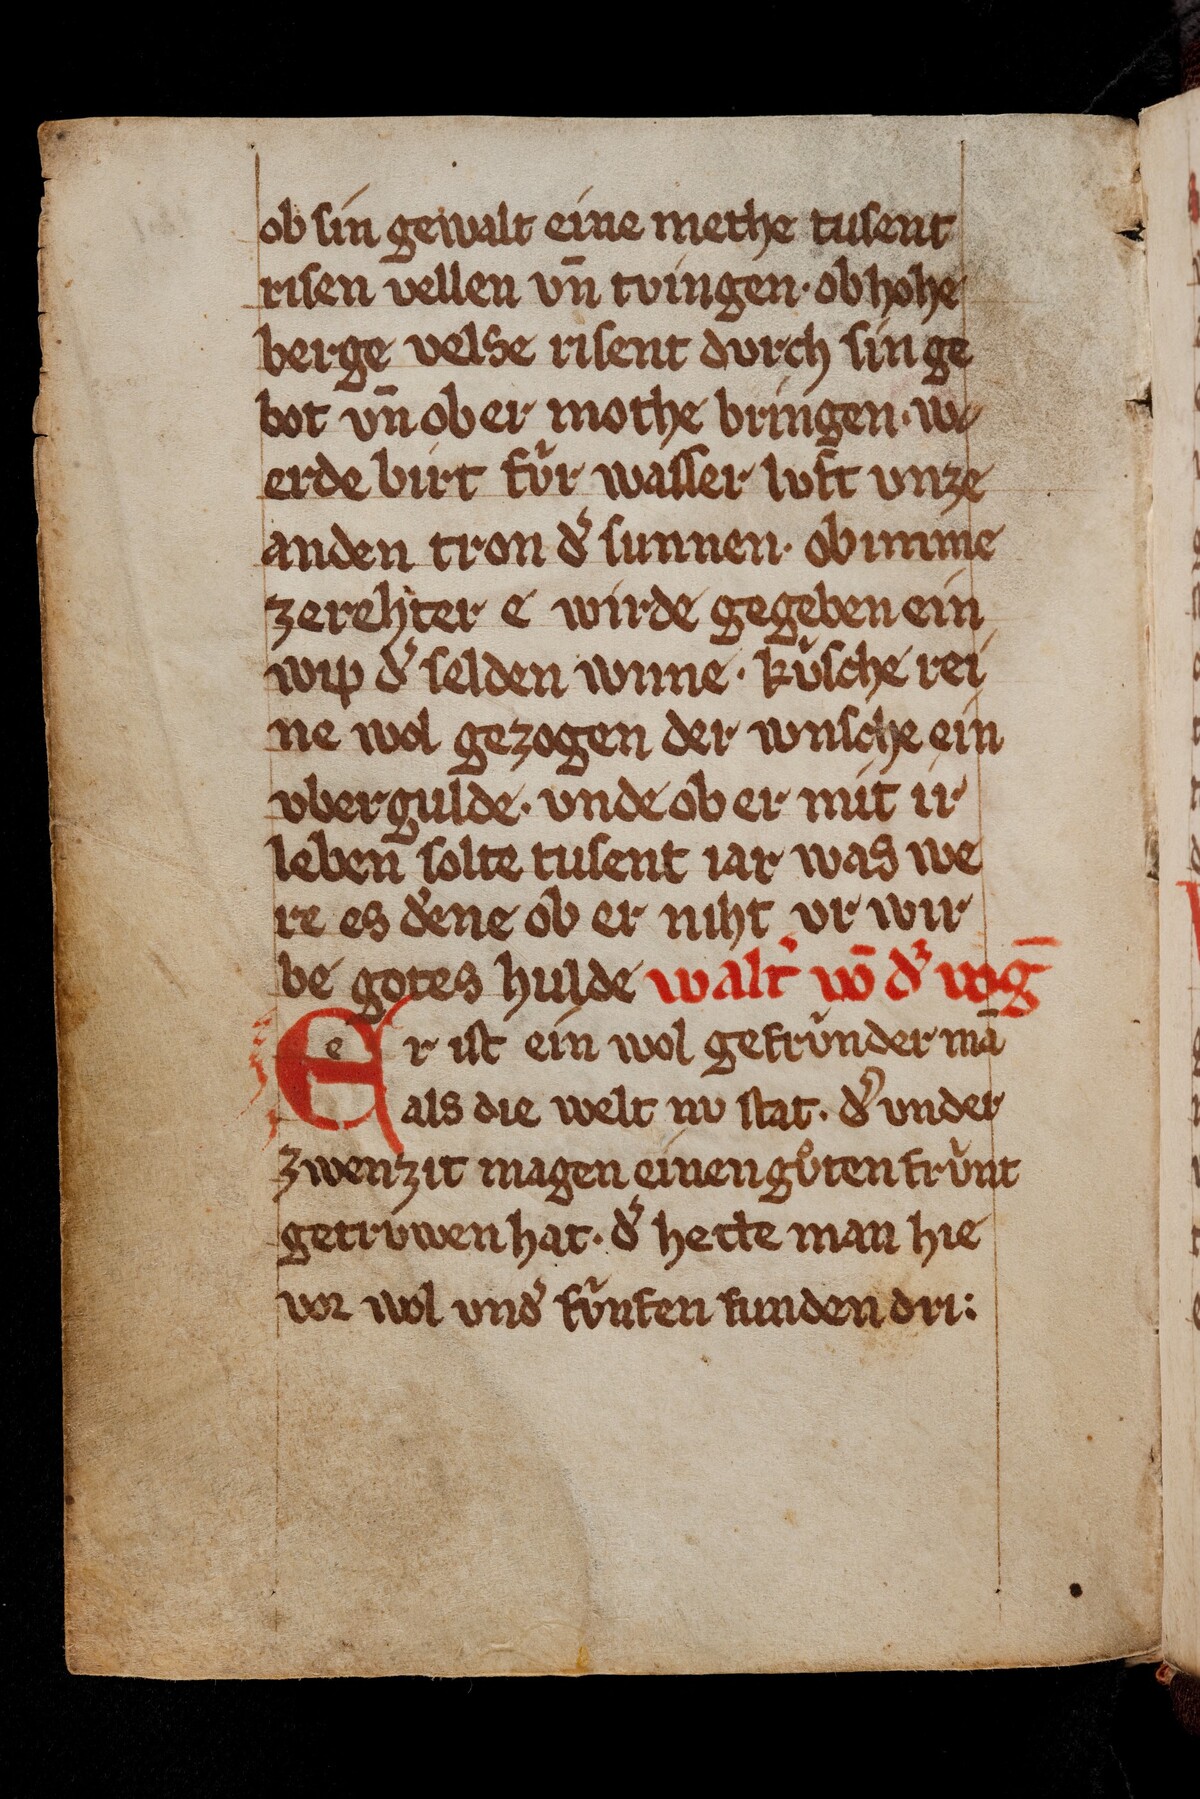 ob sin gewalt eine methe tusent
risen vellen vn̄ tvingen· ob hohe
berge velse risent dvrch sin ge
bot vn̄ ob er mothe bringen· w
erde birt fv̓r wasser lvft vnze
an den tron d̓ sunnen· ob imme
ze rehter e wirde gegeben ein
wip d̓ selden wnne· kv̓sche rei
ne wol gezogen der wnsche ein
vbergulde· vnde ob er mit ir
leben solte tusent iar was we
re es dēne ob er niht vr wir
be gotes hulde walt̓ vō d̓ voḡ
Er ist ein wol gefrv̓nder mā
als die welt nv stat· d̓ vnder
zwenzit magen einen gv̊ten frv̓nt
getrvwen hat· d̓ hette man hie
vor wol vnd̓ fv̓nfen funden dri: